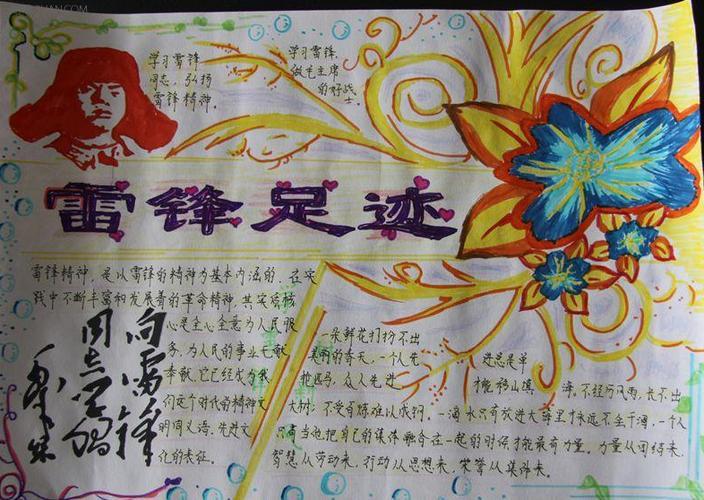 学习雷锋
同志，弘扬
雷锋精神。
学习雷锋，
做毛主席
的好战
士。
雷锋足迹
雷锋精神，是以雷锋的精神为基本内涵的、在实
践中不断丰富和发展着的革命精神，其实质核
心是全心全意为人民服
务，为人民的事业无私
奉献。它已经成为我
们这个时代的精神文
明同义语、先进文
化的表征。
向雷锋
同志学习
毛泽东
一朵鲜花打扮不出
美丽的春天，一个人先
进总是单
枪匹马，众人先进
才能移山填
海。不经历风雨，长不出
大树；不受百炼难以成钢，一滴水只有放进大海里才永远不会干涸，一个人
只有当他把自己的集体融合在一起的时候才能最有力量，力量从团结来，
智慧从劳动来，行动从思想来，荣誉从集体来。